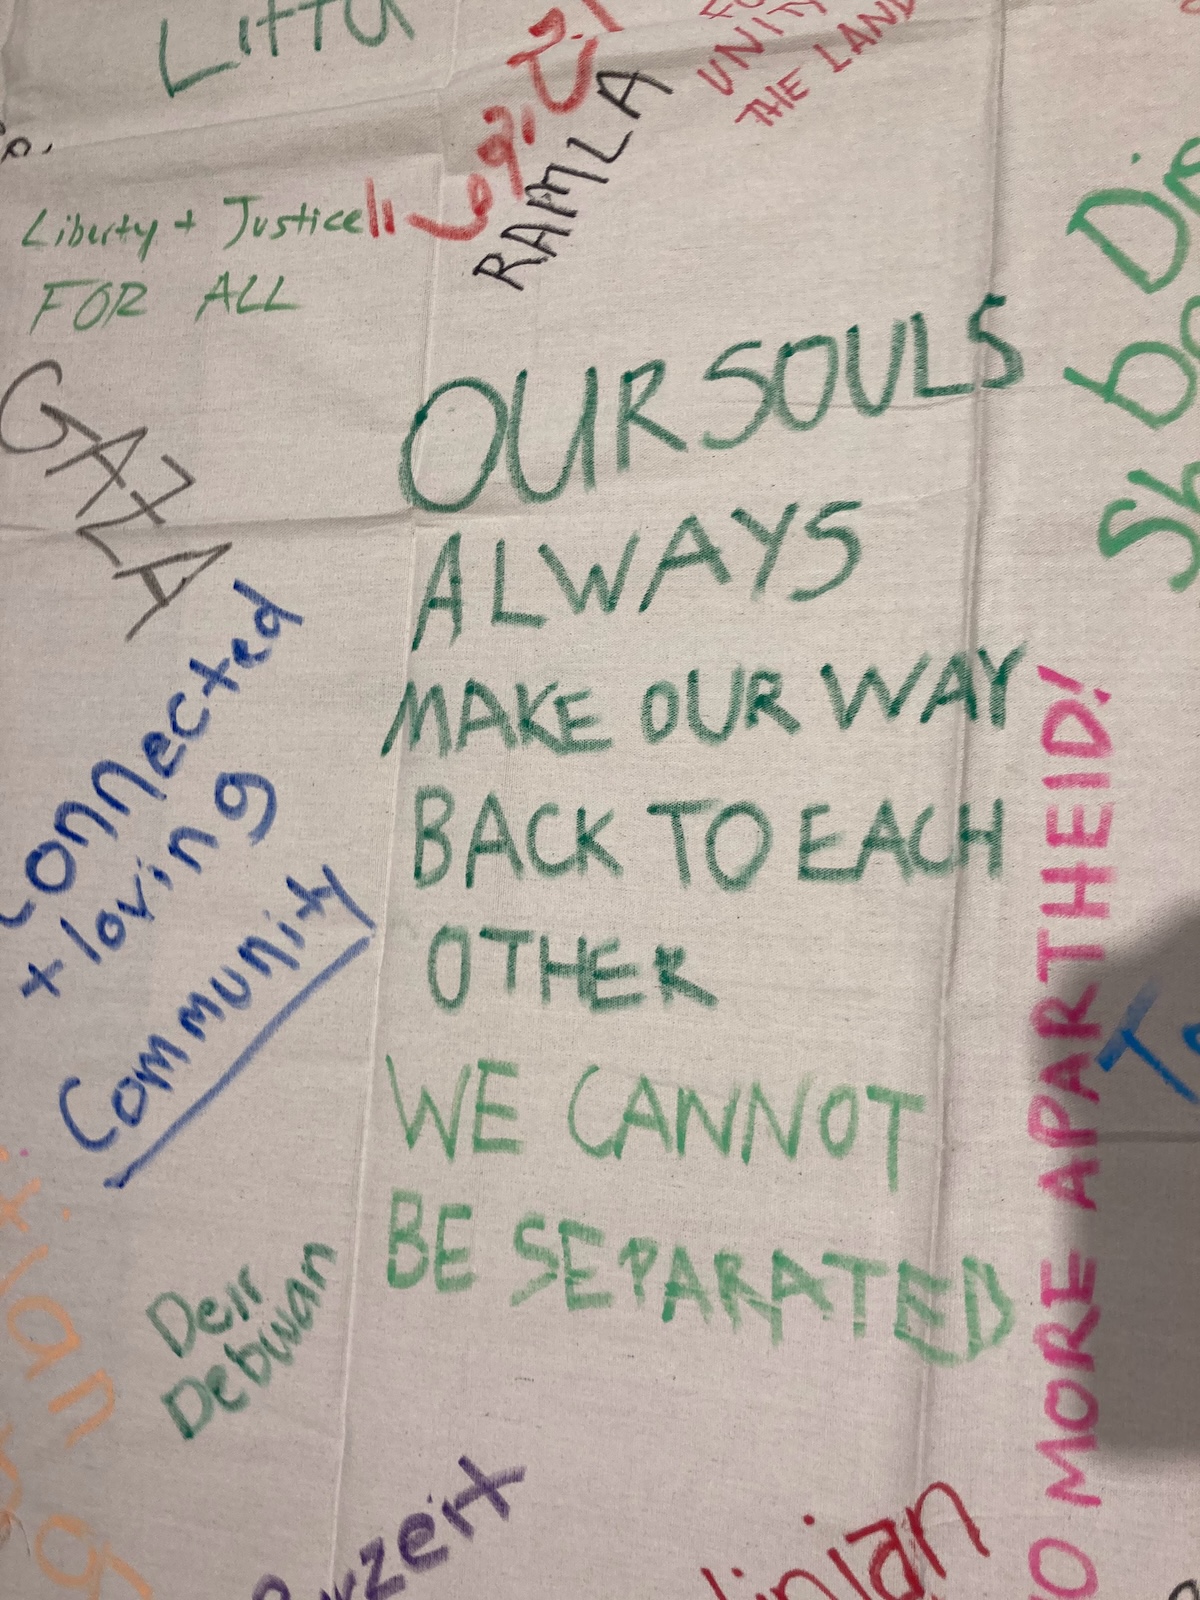 Liftu
UNITY
THE LAND
RAMLA
Liberty + Justice
FOR ALL
GAZA
OUR SOULS
ALWAYS
MAKE OUR WAY
BACK TO EACH
OTHER
WE CANNOT
BE SEPARATED
Connected
+ loving
Community
Deir
Debwan
NO MORE APARTHEID!